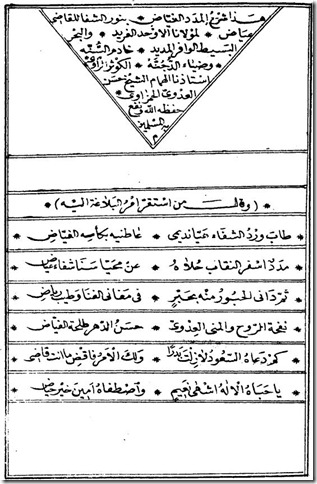 هذا شرح المدد الفياض * بنور الشفا للقاضي
عياض * لمولانا الأوحد الفريد * والبحر
البسيط الوافر المديد * خادم السنه
* وضياء الدجنه * الكوثر الراوى
استاذنا الهمام الشيخ حسن
العدوى الحمزاوى
حفظه الله ونفع
به المسلمين
م
* (وقال من استقر امر البلاغة اليه) *
* طاب ورد الشفاء عيانديمى * عاطنيه بكاسه الفياض *
* مدد اسفر النقاب حلاه * عن محيا سنا شفاء عياض *
* الحبور منه بحبر * فى معانى الفنا وطيب رياض *
* نفحة الروح والمنى العدوى * حسن الدهر طلحة الفياض *
* كم دعاه السعود لازلت بدرا * ولك الأمر فاقض ما انت قاضى *
* يا حباه الاله اشفى نعيم * واصطفاه امين خير حياض *